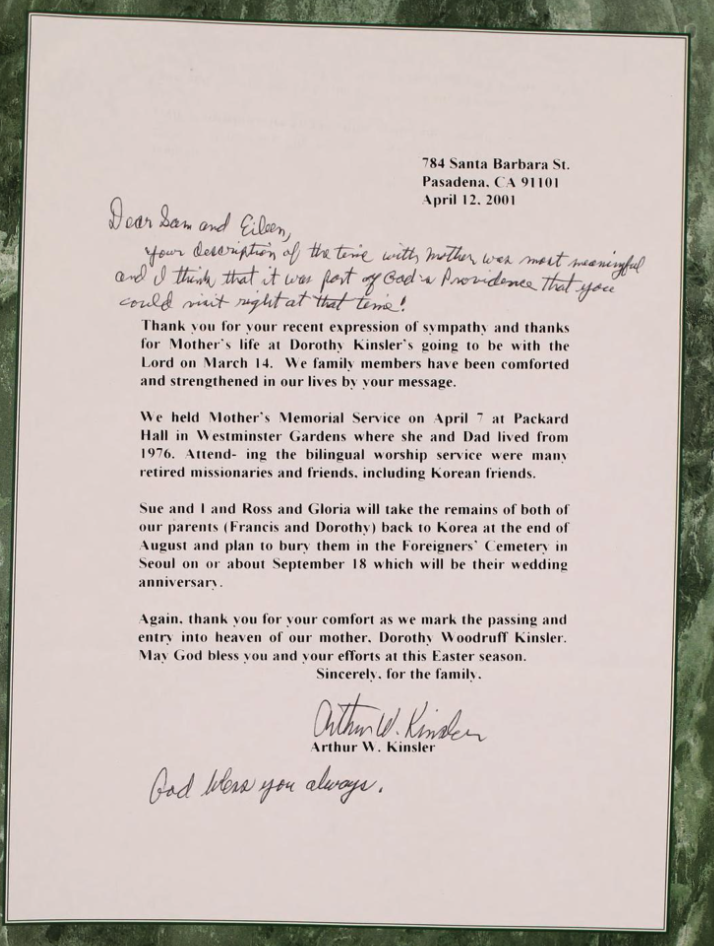 784 Santa Barbara St.
Pasadena, CA 91101
April 12, 2001
Dear Sam and Eileen,
your description of the time with mother was most meaningful
and I think that it was part of God's Providence that you
could visit right at that time!
Thank you for your recent expression of sympathy and thanks
for Mother's life at Dorothy Kinsler's going to be with the
Lord on March 14. We family members have been comforted
and strengthened in our lives by your message.
We held Mother's Memorial Service on April 7 at Packard
Hall in Westminster Gardens where she and Dad lived from
1976. Attend- ing the bilingual worship service were many
retired missionaries and friends, including Korean friends.
Sue and I and Ross and Gloria will take the remains of both of
our parents (Francis and Dorothy) back to Korea at the end of
August and plan to bury them in the Foreigners' Cemetery in
Seoul on or about September 18 which will be their wedding
anniversary.
Again, thank you for your comfort as we mark the passing and
entry into heaven of our mother, Dorothy Woodruff Kinsler.
May God bless you and your efforts at this Easter season.
Sincerely, for the family,
Arthur W. Kinsler
Arthur W. Kinsler
God bless you always.